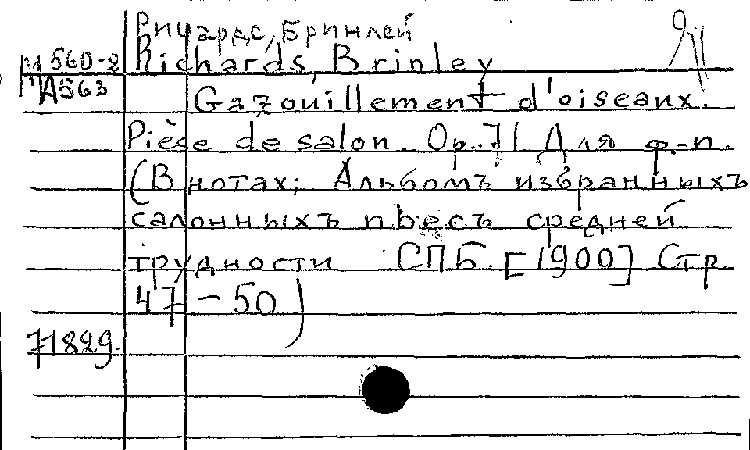 Ричардс, Бринлей
М 560-2 Richards, Brinley
А563
Gazouillement d'oiseaux.
Pièce de salon. Op. 71 Для ф.-п.
(В нотах: Альбомъ избранныхъ
салонныхъ пьесъ средней
трудности СПБ. [1900] Стр.
47-50)
71829.